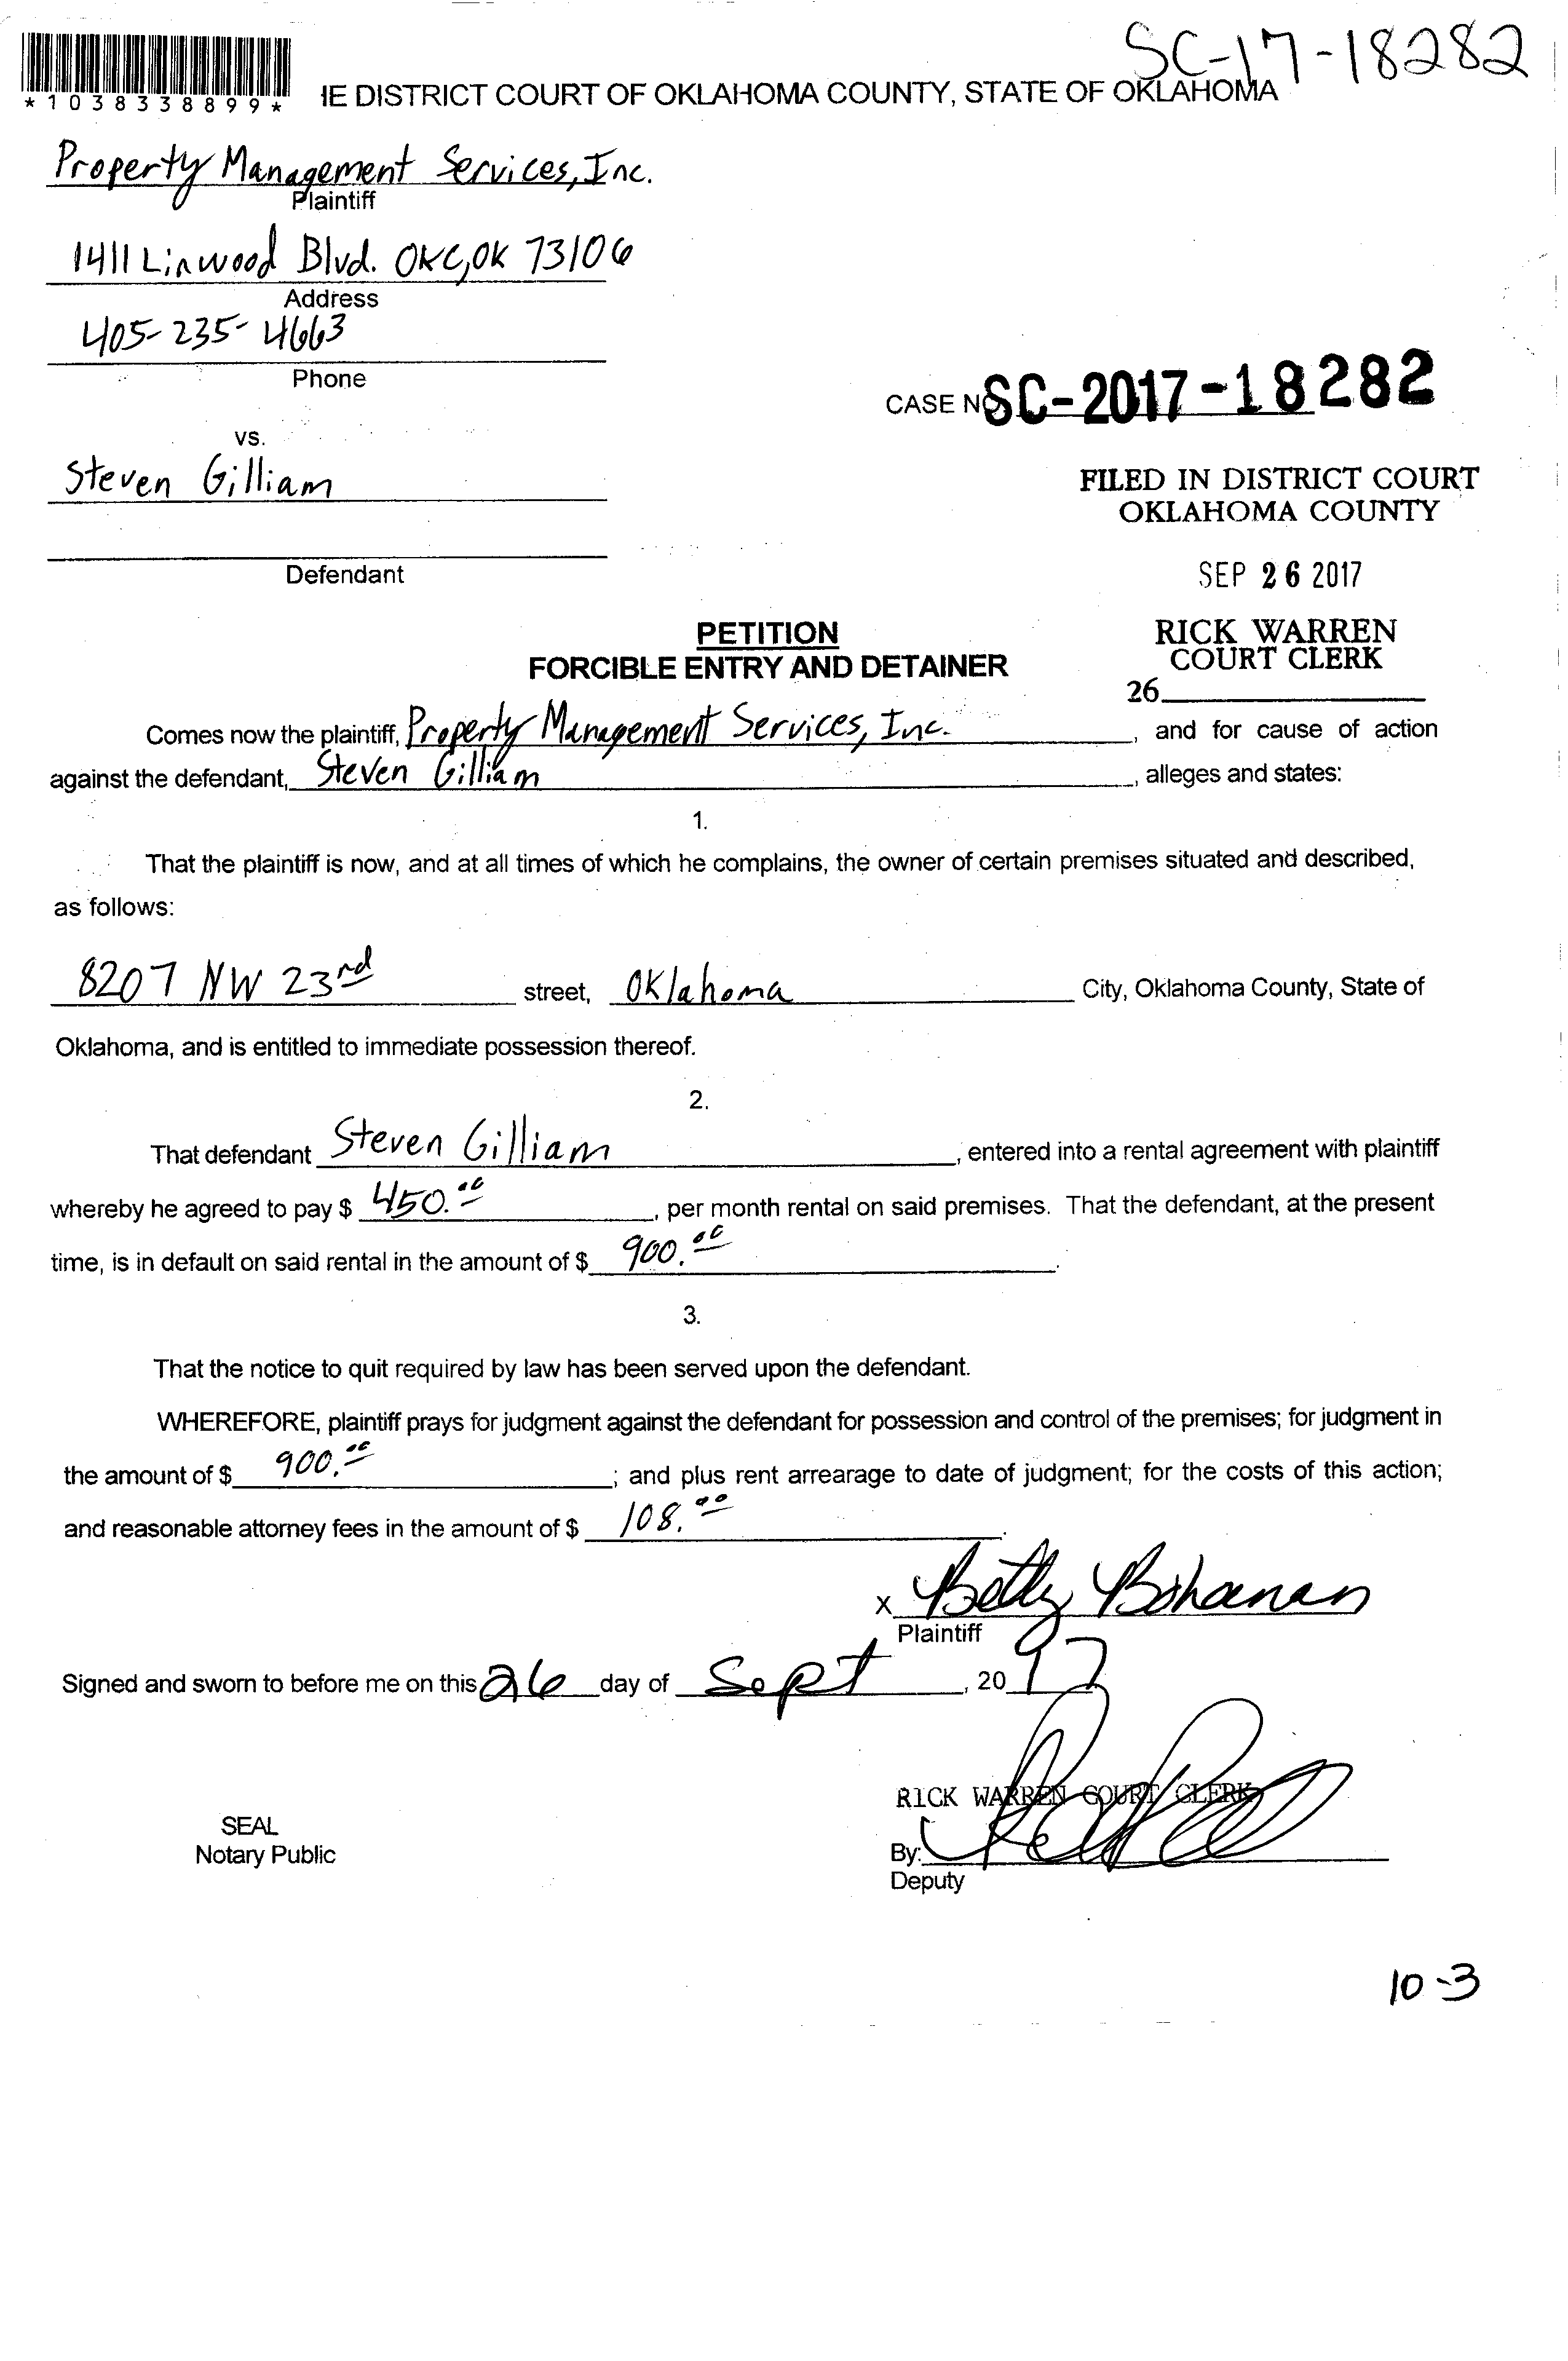 SC-17-18282
*1038338899*
IE DISTRICT COURT OF OKLAHOMA COUNTY, STATE OF OKLAHOMA
Property Management Services, Inc.
Plaintiff
1411 Linwood Blvd. OKC, OK 73106
Address
405-235-4663
Phone
CASE NO SC-2017-18282
vs.
Steven Gilliam
FILED IN DISTRICT COURT
OKLAHOMA COUNTY
Defendant
SEP 26 2017
PETITION
FORCIBLE ENTRY AND DETAINER
RICK WARREN
COURT CLERK
26
Comes now the plaintiff, Property Management Services, Inc., and for cause of action
against the defendant, Steven Gilliam, alleges and states:
1.
That the plaintiff is now, and at all times of which he complains, the owner of certain premises situated and described,
as follows:
8207 NW 23rd street, Oklahoma City, Oklahoma County, State of
Oklahoma, and is entitled to immediate possession thereof.
2.
That defendant Steven Gilliam, entered into a rental agreement with plaintiff
whereby he agreed to pay $ 450.00, per month rental on said premises. That the defendant, at the present
time, is in default on said rental in the amount of $ 900.00.
3.
That the notice to quit required by law has been served upon the defendant.
WHEREFORE, plaintiff prays for judgment against the defendant for possession and control of the premises; for judgment in
the amount of $ 900.00; and plus rent arrearage to date of judgment; for the costs of this action;
and reasonable attorney fees in the amount of $ 108.00.
X Betty Bohanan
Plaintiff
Signed and sworn to before me on this 26 day of Sept, 2017
RICK WARREN COURT CLERK
SEAL
Notary Public
By:
Deputy
10-3